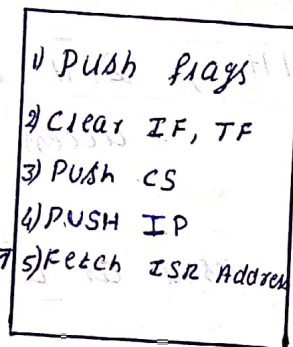 1) PUsh flags
2) Clear IF, TF
3) PUsh CS
4) PUSH IP
5) Fetch ISR Address